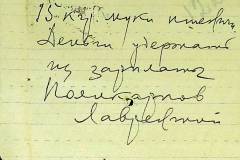 15 кгр муки пшенич
Деньги удержать
из зарплаты
Поликарпов
Лаврецкий